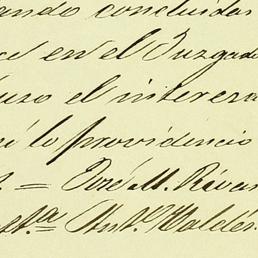 ando concluidas
en el Juzgado
uso el interesa
lo providencio
= José M. Rivas
Ant.o Valdés